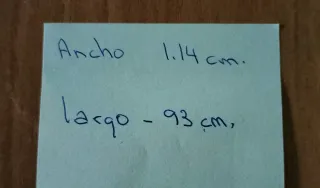 Ancho 1.14 cm.
largo - 93 cm,